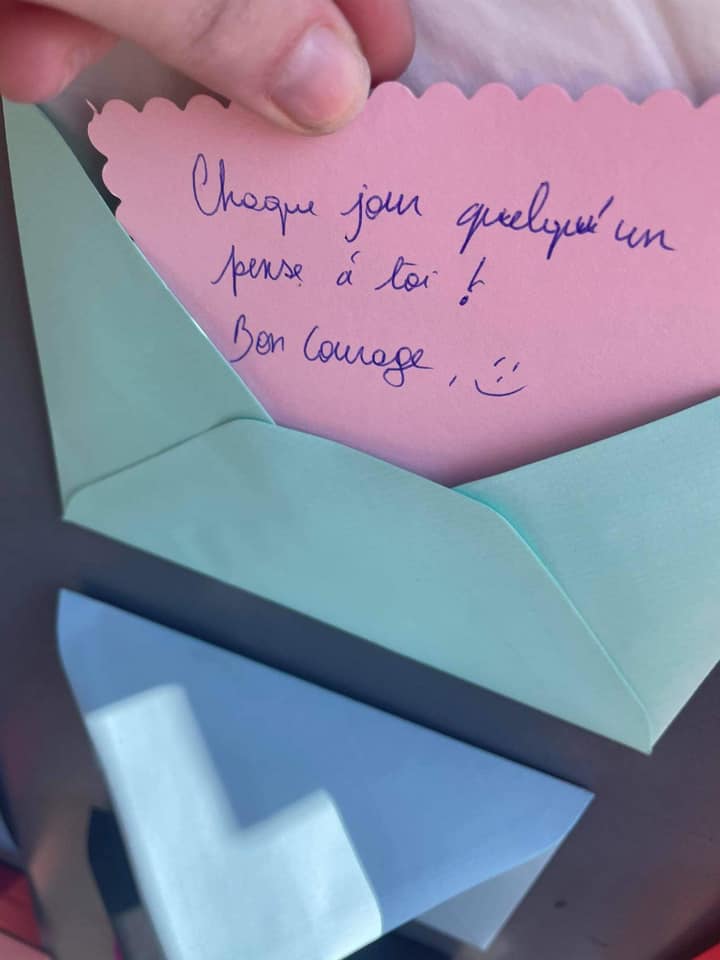 Chaque jour quelqu'un
pense à toi !
Bon courage, :)